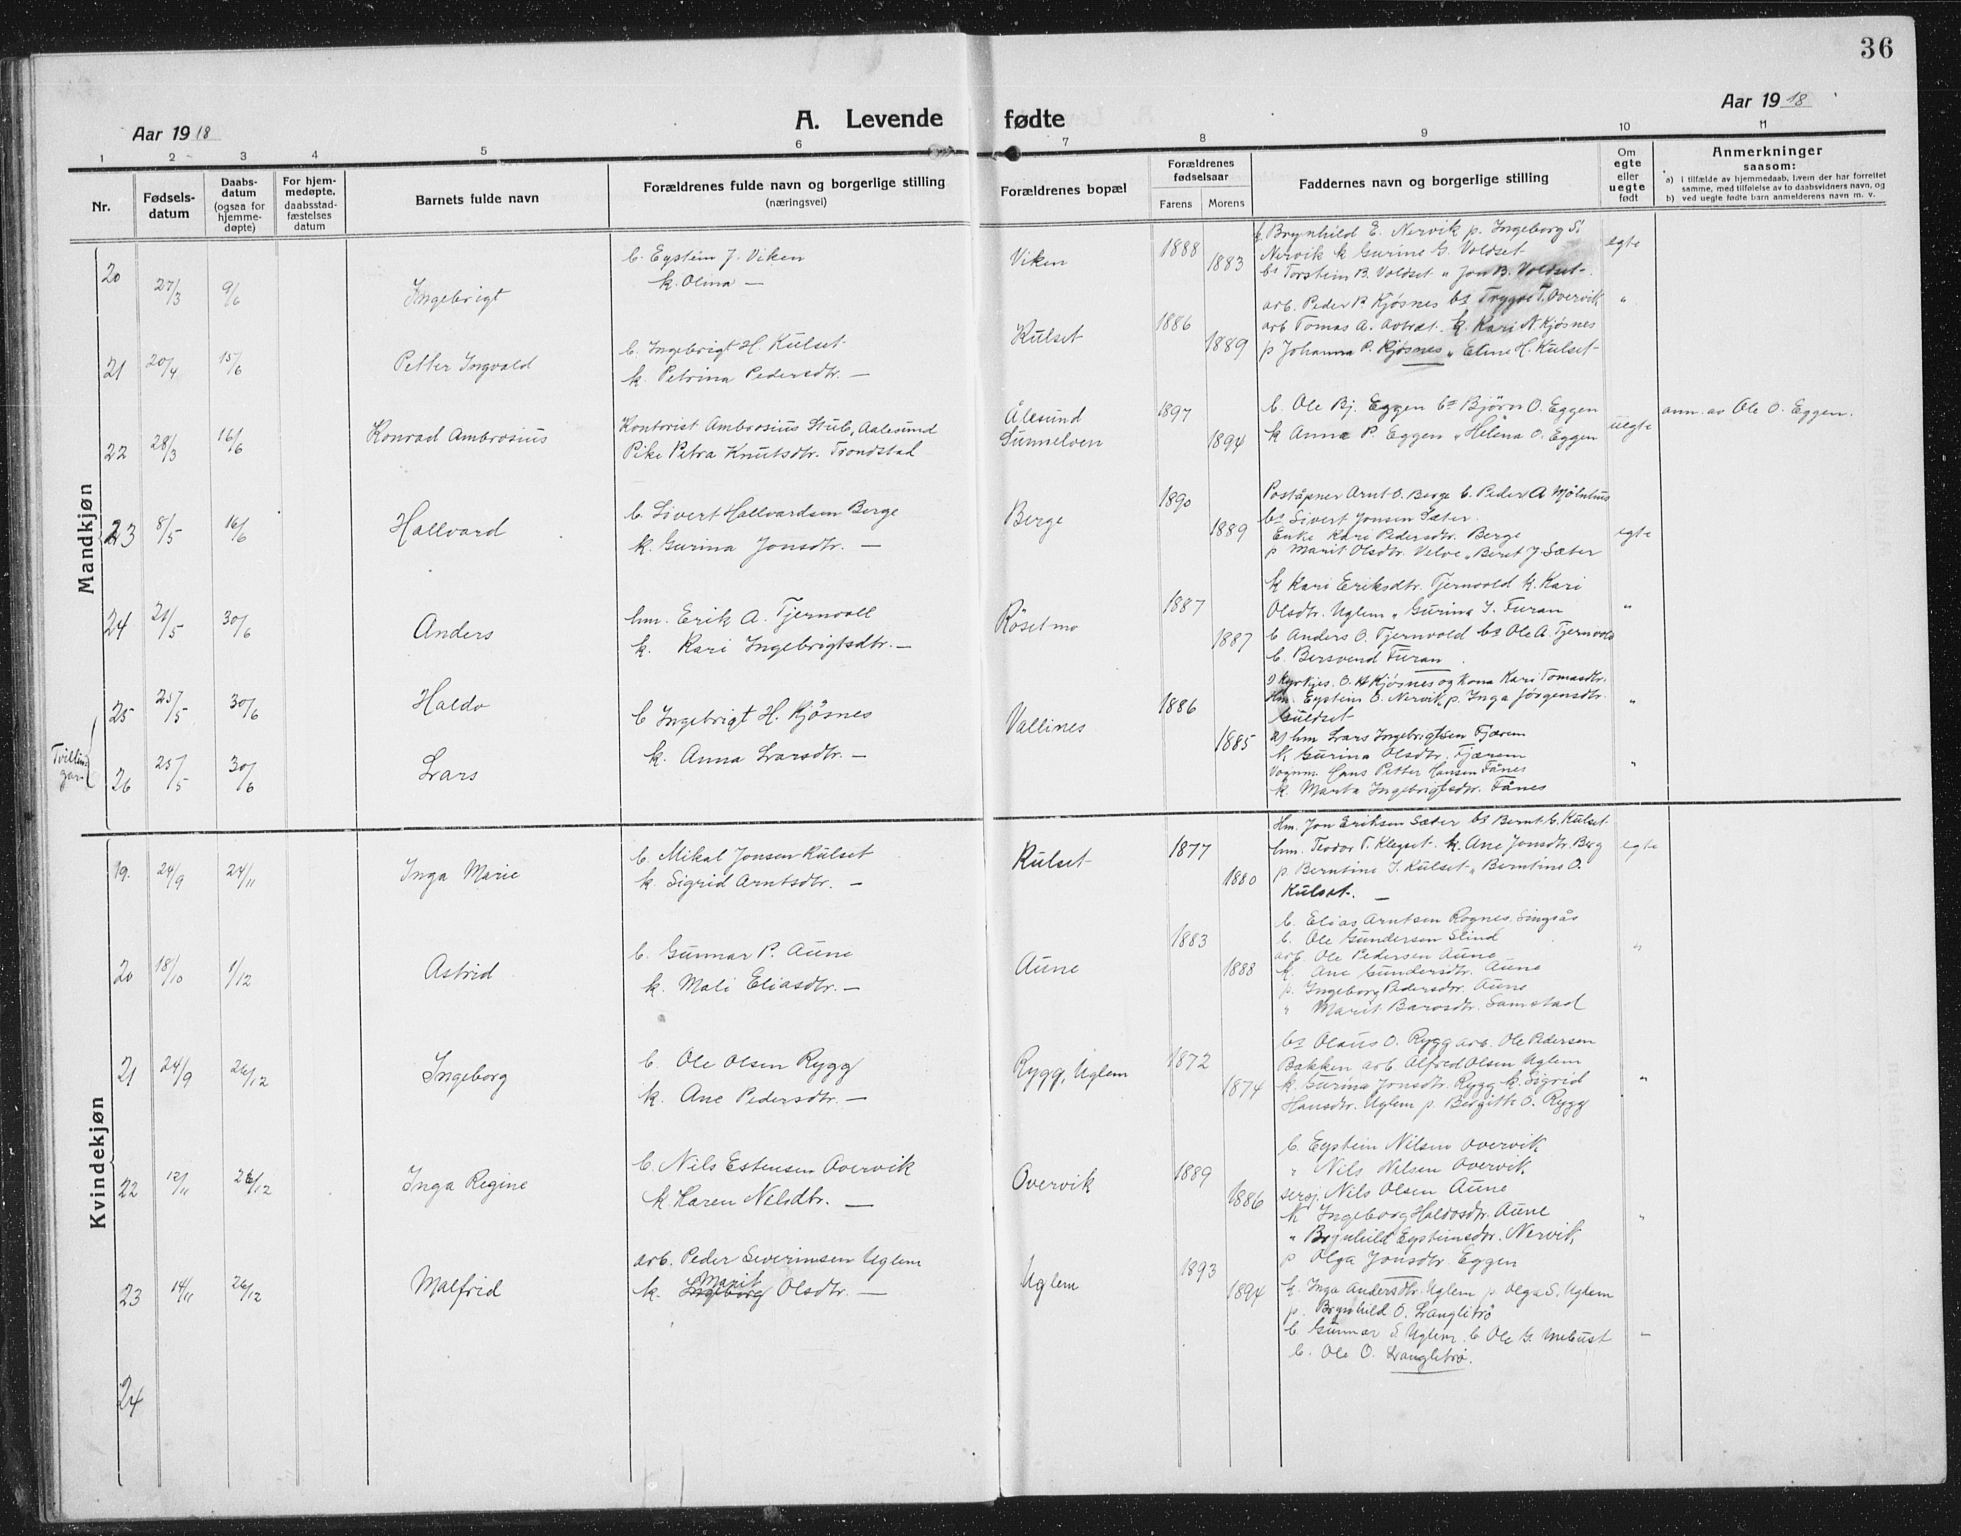 36
Aar 1918
A. Levende fødte
Aar 1918
1 2 3 4 5 6 7 8 9 10 11
Nr.
Fødsels-
datum
Daabs-
datum
(ogsaa for
hjemme-
døpte)
For hjem-
medøpte,
daabsstad-
fæstelses
datum
Barnets fulde navn
Forældrenes fulde navn og borgerlige stilling
(næringsvei)
Forældrenes bopæl
Forældrenes
fødselsaar
Farens Morens
Faddernes navn og borgerlige stilling
Om
egte
eller
uegte
født
Anmerkninger
saasom:
a) i tilfælde av hjemmedaab, hvem der har forrettet
samme, med tilføielse av to daabsvidners navn, og
b) ved uegte fødte barn anmelderens navn m. v.
Mandkjøn
20 27/3 9/6 Ingebrigt
b. Eystein J. Viken
k. Olina —
Viken 1888 1883
k. Brynhild E. Nervik p. Ingeborg S.
Nervik k Gurine G. Voldset
bs Torstein B. Voldset " Jon B. Voldset
egte
21 20/4 15/6 Petter Ingvald
b. Ingebrigt H. Kulset
k. Petrina Pedersdtr. —
Kulset 1886 1889
arb. Peder P. Kjøsnes bs Trygve T. Overvik
arb Tomas A. k. Kari N Kjøsnes
p Johanna P. Kjøsnes " Eline H. Kulset
"
22 28/3 16/6 Konrad Ambrosius
Kontorist Ambrosius Stub, Aalesund
Pike Petra Knutsdtr. Trondstad
Ålesund
Sunnelven
1897 1894
b. Ole Bj. Eggen bs Bjørn O. Eggen
k Anna P. Eggen " Helena O. Eggen
uegte
anm. av Ole O. Eggen.
23 8/5 16/6 Hallvard
b. Sivert Hallvardsen Berge
k. Gurina Jonsdtr. —
Berge 1890 1889
Poståpner Arnt O. Berge b. Peder A Mjølnhus
bs Sivert Jonsen Sæter
Enke Kari Pedersdtr. Berge
p Marit Olsdtr. Velve " Berit J. Sæter
egte
24 21/5 30/6 Anders
hm. Erik A. Tjernvoll
k. Kari Ingebrigtsdtr. —
Røsetmo 1887 1887
k Kari Eriksdtr. Tjernvold k. Kari
Olsdtr. Uglem " Gurina I. Furan
b Anders O. Tjernvold bs Ole A. Tjernvold
b. Bersvend Furan
"
Tvillin-
gar
25 25/5 30/6 Haldo
26 25/5 30/6 Lars
b Ingebrigt H. Kjøsnes
k. Anna Larsdtr. —
Vallines 1886 1885
Kyrkjes. O. H Kjøsnes og kona Kari Tomasdtr.
Hm. Eystein O. Nervik p. Inga Jørgensdtr.
Guldset
hm Lars Ingebrigtsen Fjærem
k. Gurina Olsdtr. Fjærem
Vognm. Hans Petter Hansen Fånes
k. Marta Ingebrigtsdtr. Fånes
"
"
Kvindekjøn
19. 24/9 24/11 Inga Marie
b. Mikal Jonsen Kulset
k. Sigrid Arntsdtr. —
Kulset 1877 1880
Hm. Jon Eriksen Sæter bs Bernt E. Kulset
hm. Teodor T. Klegset. k. Ane Jonsdtr. Berg
p Berntine I. Kulset " Berntine O.
Kulset. —
egte
20 18/10 1/12 Astrid
b. Gunnar P. Aune
k. Mali Eliasdtr. —
Aune 1883 1888
b. Elias Arntsen Rognes. Singsås
b. Ole Gundersen Slind
arb. Ole Pedersen Aune
k. Ane Gundersdtr. Aune
p. Ingeborg Pedersdtr. Aune
" Marit Barosdtr. Samstad
"
21 24/9 26/12 Ingeborg
b. Ole Olsen Rygg
k. Ane Pedersdtr. —
Rygg, Uglem 1872 1874
bs Olaus O. Rygg arb. Ole Pedersen
Bakken arb. Alfred Olsen Uglem
k. Gurina Jonsdtr. Rygg k. Sigrid
Hansdtr. Uglem p. Bergitte O. Rygg
"
22 12/11 26/12 Inga Regine
b. Nils Estensen Overvik
k. Karen Nelsdtr. —
Overvik 1889 1886
b. Eystein Nilsen Overvik
" Nils Nilsen Overvik
sersj. Nils Olsen Aune
k Ingeborg Haldosdtr. Aune
" Brynhild Eysteinsdtr. Nervik
p Olga Jonsdtr Eggen
"
23 14/11 26/12 Malfrid
arb. Peder Severinsen Uglem
k. Ingeborg Marit Olsdtr. —
Uglem 1893 1894
k. Inga Andersdtr. Uglem p Olga S. Uglem
p. Brynhild O. Langlitrø
b. Gunnar S. Uglem. b Ole G. Unbust
b. Ole O. Langlitrø.
"
24